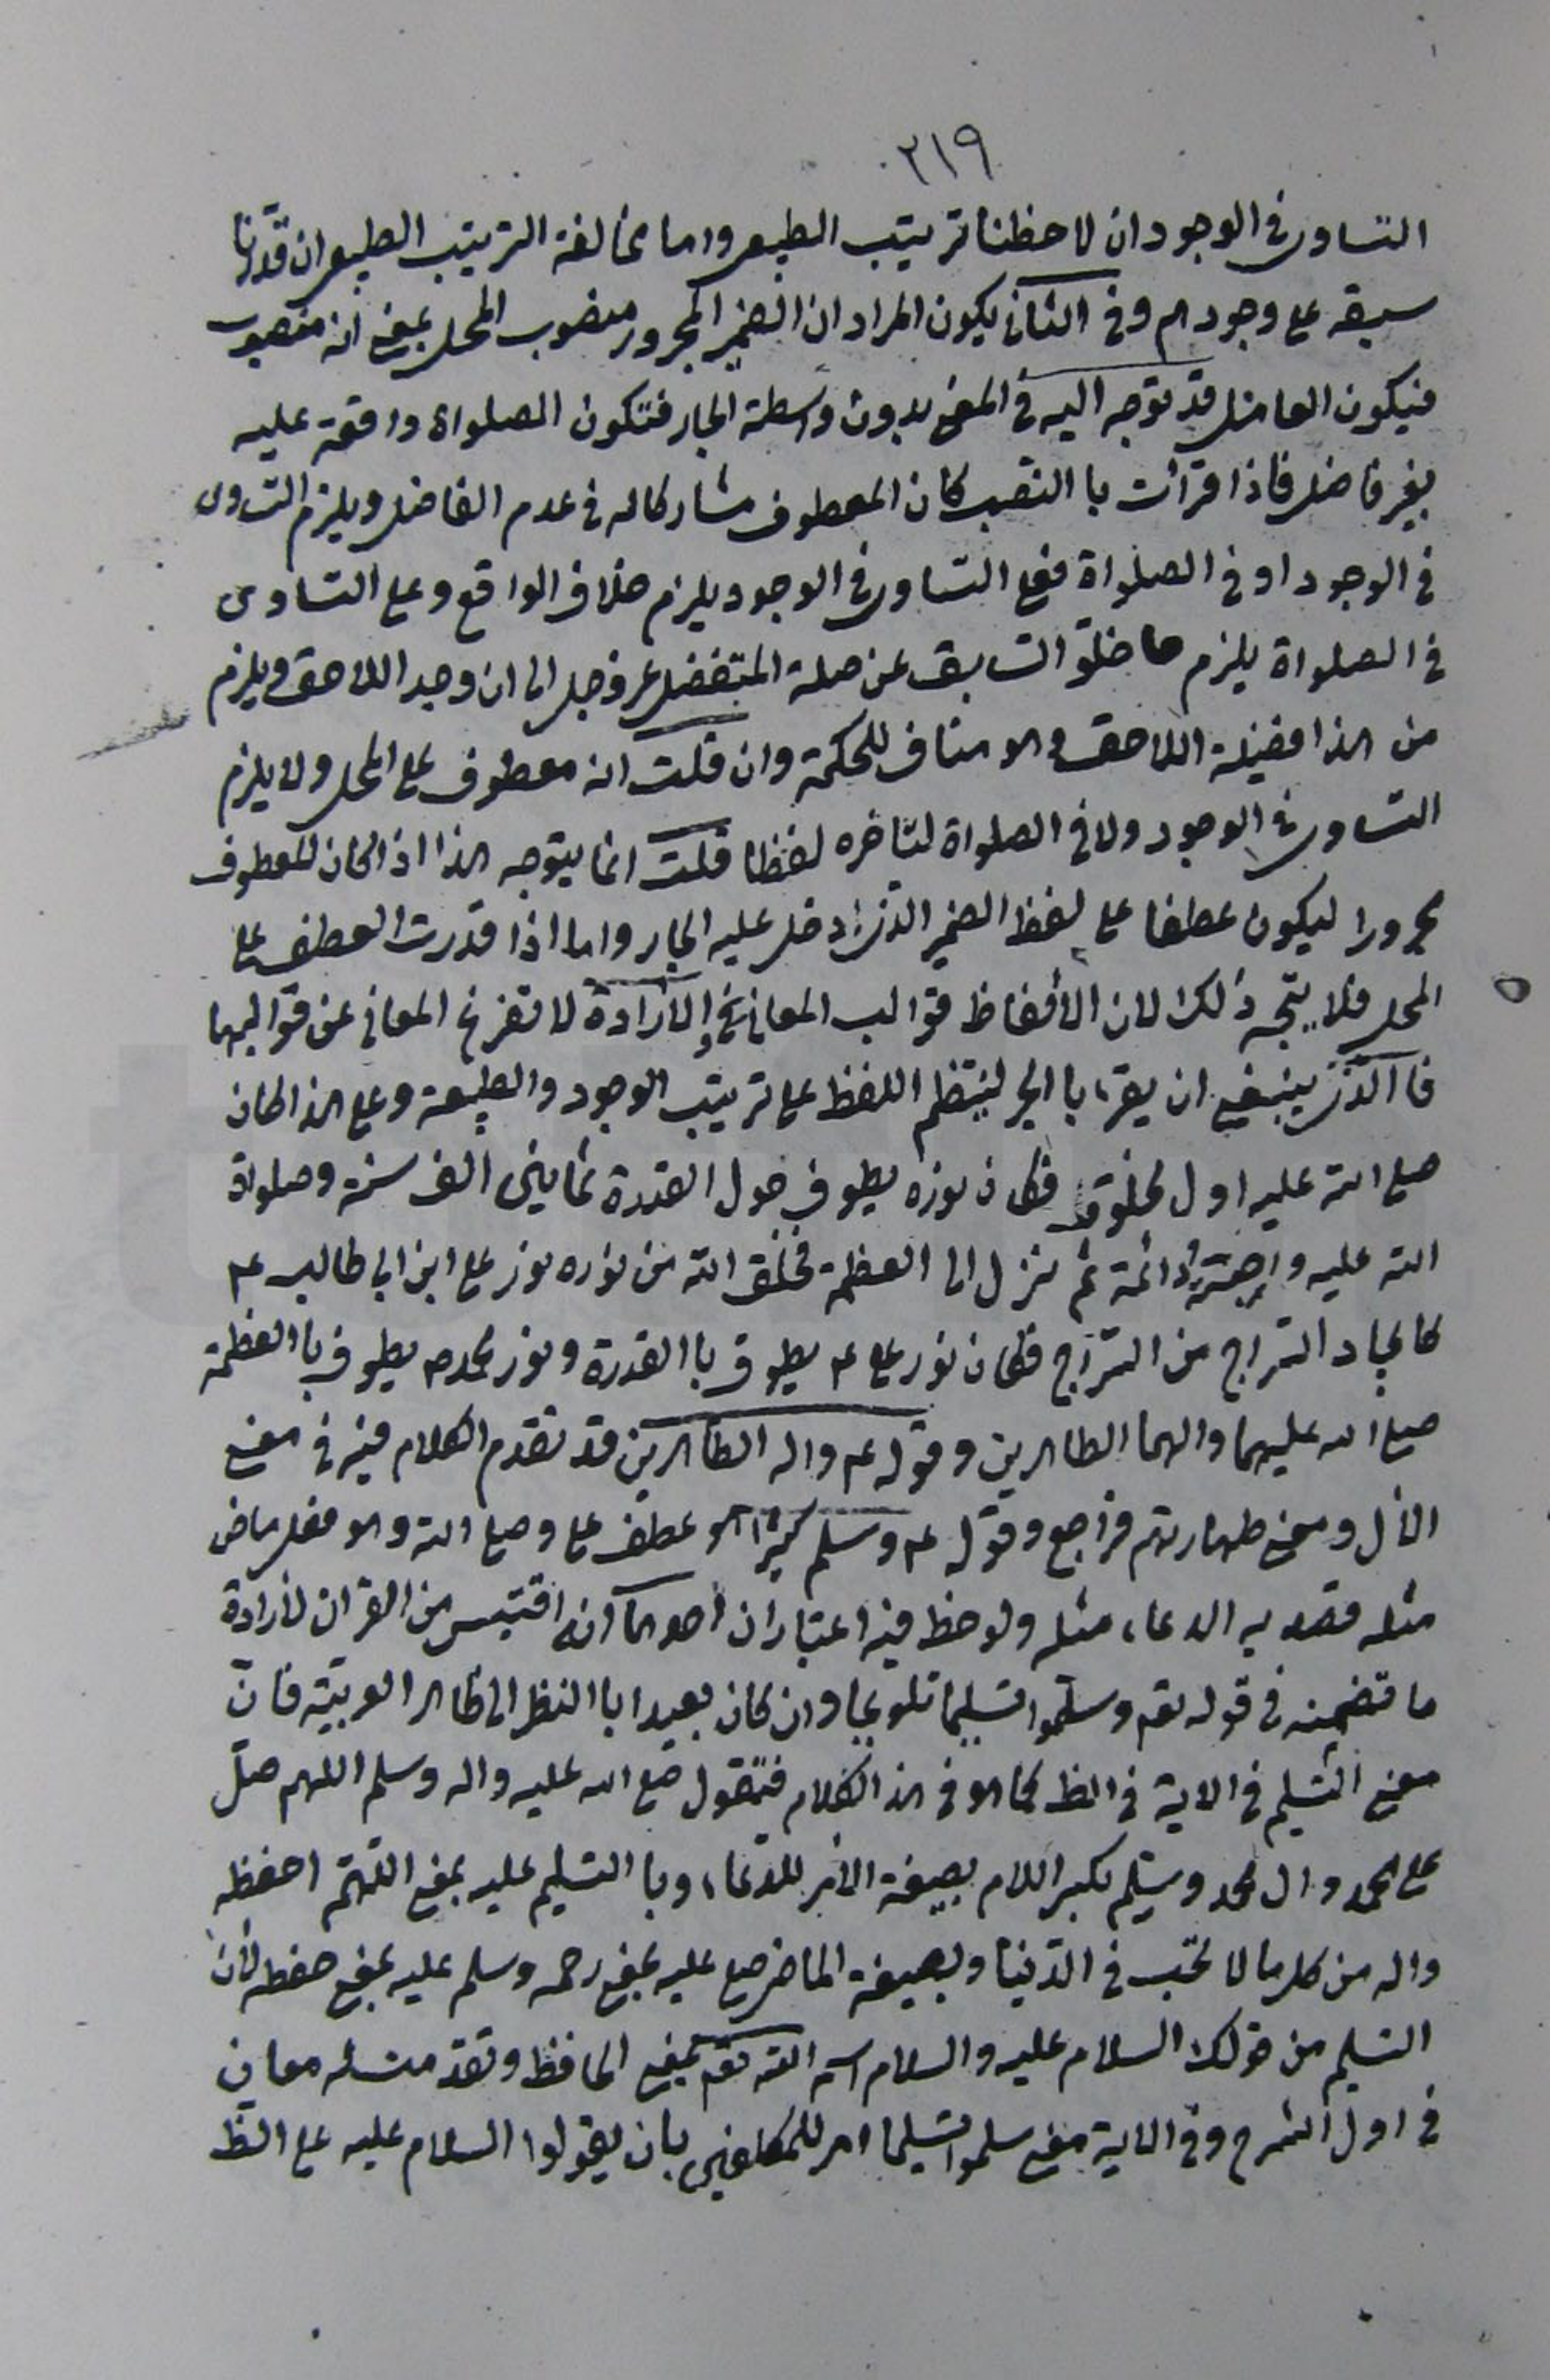 ٢١٩
التساوى فى الوجود ان لاحظنا ترتيب الطبيعى واما مخالفة الترتيب الطبيعى ان قدرنا
سبقه على وجودهم وفى الثانى يكون المراد ان الضمير المجرور منصوب المحل بمعنى انه منصوب
فيكون العامل قد توجه اليه فى المعنى بدون واسطة الجار فتكون الصلواة واقعة عليه
بغير فاضل فاذا قرأت با النصب كان المعطوف مشاركا له فى عدم الفاضل ويلزم التساوى
فى الوجود او فى الصلواة فعلى التساوى فى الوجود يلزم خلاف الواقع وعلى التساوى
فى الصلواة يلزم اما خلوّ السابق عن صلة المتفضل عزوجل الى ان وجد اللاحق ويلزم
من هذا افضيلة اللاحق وهو مناف للحكمة وان قلت انه معطوف على المحل ولا يلزم
التساوى فى الوجود ولا فى الصلواة لتاخره لفظا قلت انما يتوجه هذا اذا كان المعطوف
مجرورا ليكون عطفا على لفظ الضمير الذى دخل عليه الجار واما اذا قدرت العطف على
المحل فلا يتجه ذلك لان الألفاظ قوالب المعانى فى الارادة لا تفرغ المعانى عن قوالبها
فا الذى ينبغى ان يقرء با الجر لينتظم اللفظ على ترتيب الوجود والطبيعة وعلى هذا كان
صلى الله عليه اول مخلوق فكان نوره يطوف حول القدرة ثمانين الف سنة وصلواة
الله عليه واجبة دائمة ثم نزل الى العظمة فخلق الله من نوره نور على ابن ابى طالب ع
كايجاد السراج من السراج فكان نور على ع يطوف با القدرة ونور محمد ص يطوف با العظمة
صلى الله عليهما والهما الطاهرين وقوله ع واله الطاهرين قد تقدم الكلام فيه فى معنى
الآل ومعنى طهارتهم فراجع وقوله ع وسلم كثيرا هو عطف على وصلى الله وهو فعل ماض
مثله قصد به الدعاء مثله ولوحظ فيه اعتباران احدهما انه اقتبس من القران لارادة
ما تضمنه فى قوله تع وسلموا تسليما تلويحا وان كان بعيدا با النظر الى ظاهر العربية فان
معنى التسليم فى الاية فى الظ كما هو فى هذا الكلام فتقول صلى الله عليه واله وسلم اللهم صل
على محمد وال محمد وسلم بكسر اللام بصيغة الامر للدعاء وبا التسليم عليه بمعنى اللهم احفظه
واله من كل ما لا تحب فى الدنيا وبصيغة الماضى صلى عليه بمعنى رحمه وسلم عليه بمعنى حفظه لان
التسليم من قولك السلام عليه والسلام اسم الله تع بمعنى الحافظ وتقدمت له معان
فى اول الشرح وفى الاية معنى سلموا تسليما امر للمكلفين بان يقولوا السلام عليه على الظ